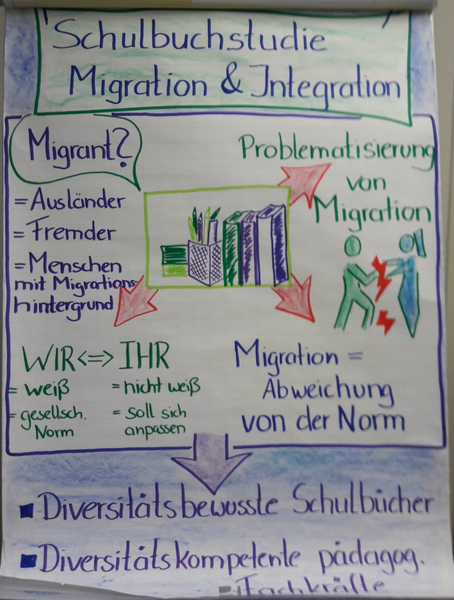 Schulbuchstudie
Migration & Integration
Migrant?
= Ausländer
= Fremder
= Menschen
mit Migrations
hintergrund
Problematisierung
von
Migration
WIR <=> IHR
= weiß = nicht weiß
= gesellsch. = soll sich
Norm anpassen
Migration =
Abweichung
von der Norm
Diversitätsbewusste Schulbücher
Diversitätskompetente pädagog.
Fachkräfte